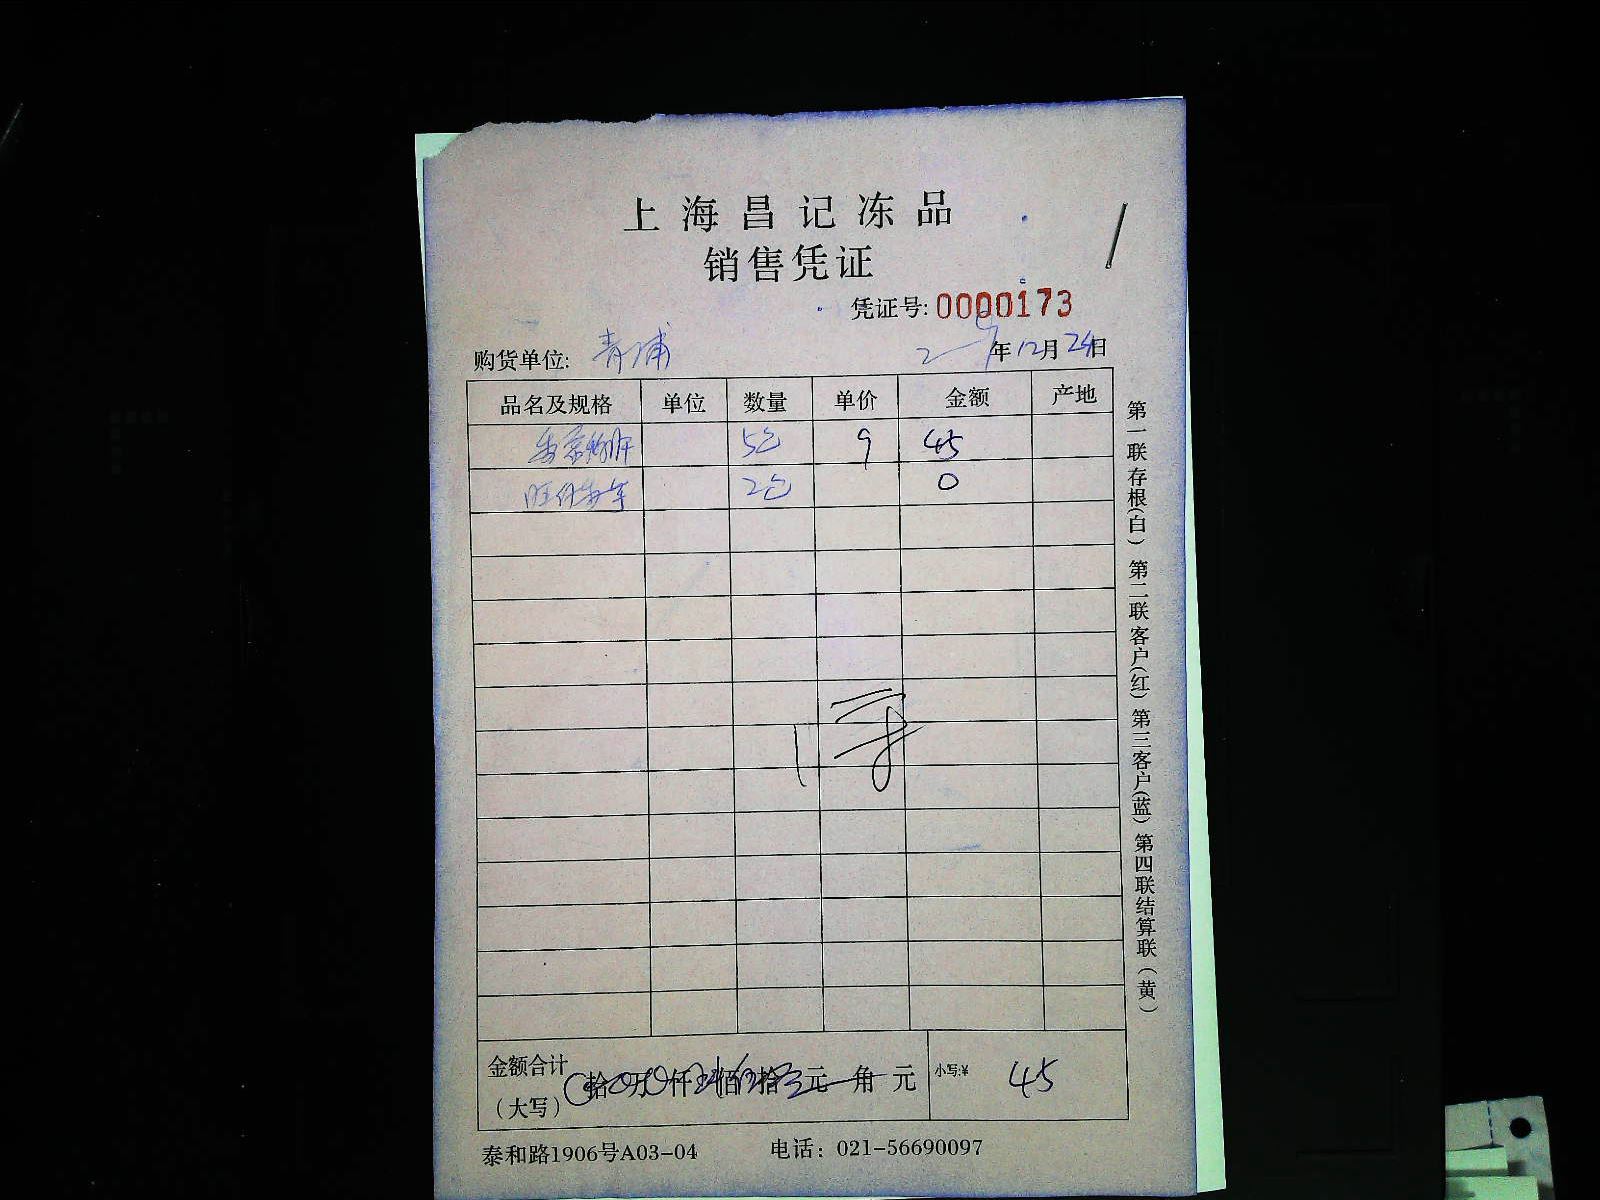 上海昌记冻品
销售凭证
凭证号: 0000173
购货单位: 青浦 年12月24日
品名及规格 单位 数量 单价 金额 产地
5包 9 45
2包 0
金额合计
（大写） 拾 万 仟 佰 拾 元 角 元 小写:¥ 45
泰和路1906号A03-04 电话：021-56690097
第一联存根(白) 第二联客户(红) 第三客户(蓝) 第四联结算联(黄)